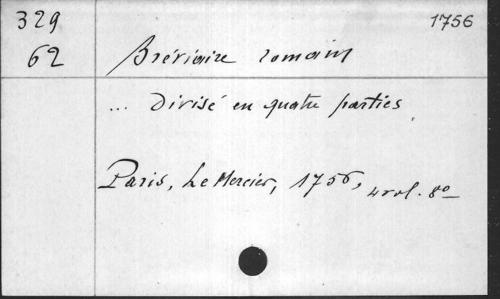 329 1756
62 Bréviaire romain
... Divisé en quatre parties
Paris, Le Mercier, 1756, 4 vol. 8º